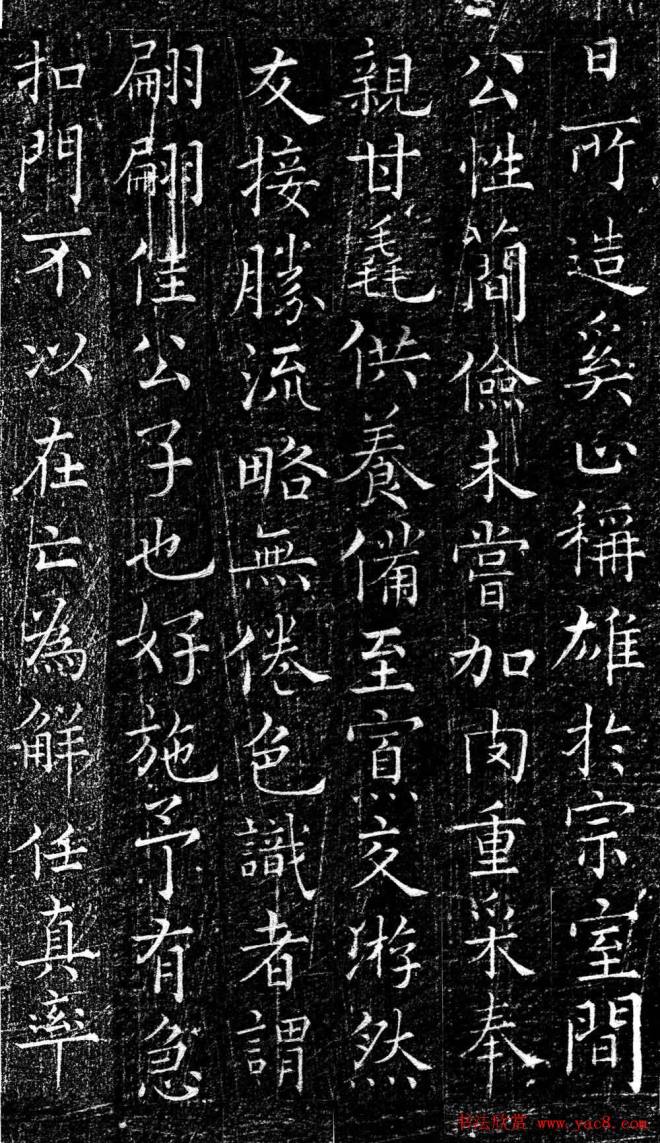 日所造奚止稱雄於宗室間
公性簡儉未嘗加肉重采奉
親甘毳供養備至寡交游然
友接勝流略無倦色識者謂
翩翩佳公子也好施予有急
扣門不以在亡為觧任真率
书法欣赏 www.yac8.com